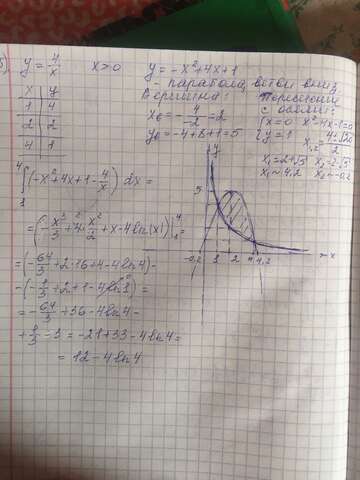 5) y = 4/x   x > 0   y = -x²+4x+1
x | y
1 | 4
2 | 2
4 | 1
- парабола, ветви вниз
Вершина:
x₀ = -4/-2 = 2
y₀ = -4+8+1 = 5
с осями:
{x=0
{y=1
x²-4x-1=0
x₁,₂ = 4±√20/2
x₁=2+√5 x₂=2-√5
x₁~4,2 x₂~-0,2
∫₁⁴ (-x²+4x+1-4/x) dx =
= (-x³/3 + 4·x²/2 + x - 4ln|x|)|₁⁴ =
= (-64/3 + 2·16 + 4 - 4ln4) -
- (-1/3 + 2 + 1 - 4ln1) =
= -64/3 + 36 - 4ln4 -
+ 1/3 - 3 = -21 + 33 - 4ln4 =
= 12 - 4ln4
y
5
-0,2 1 2 4 4,2 x